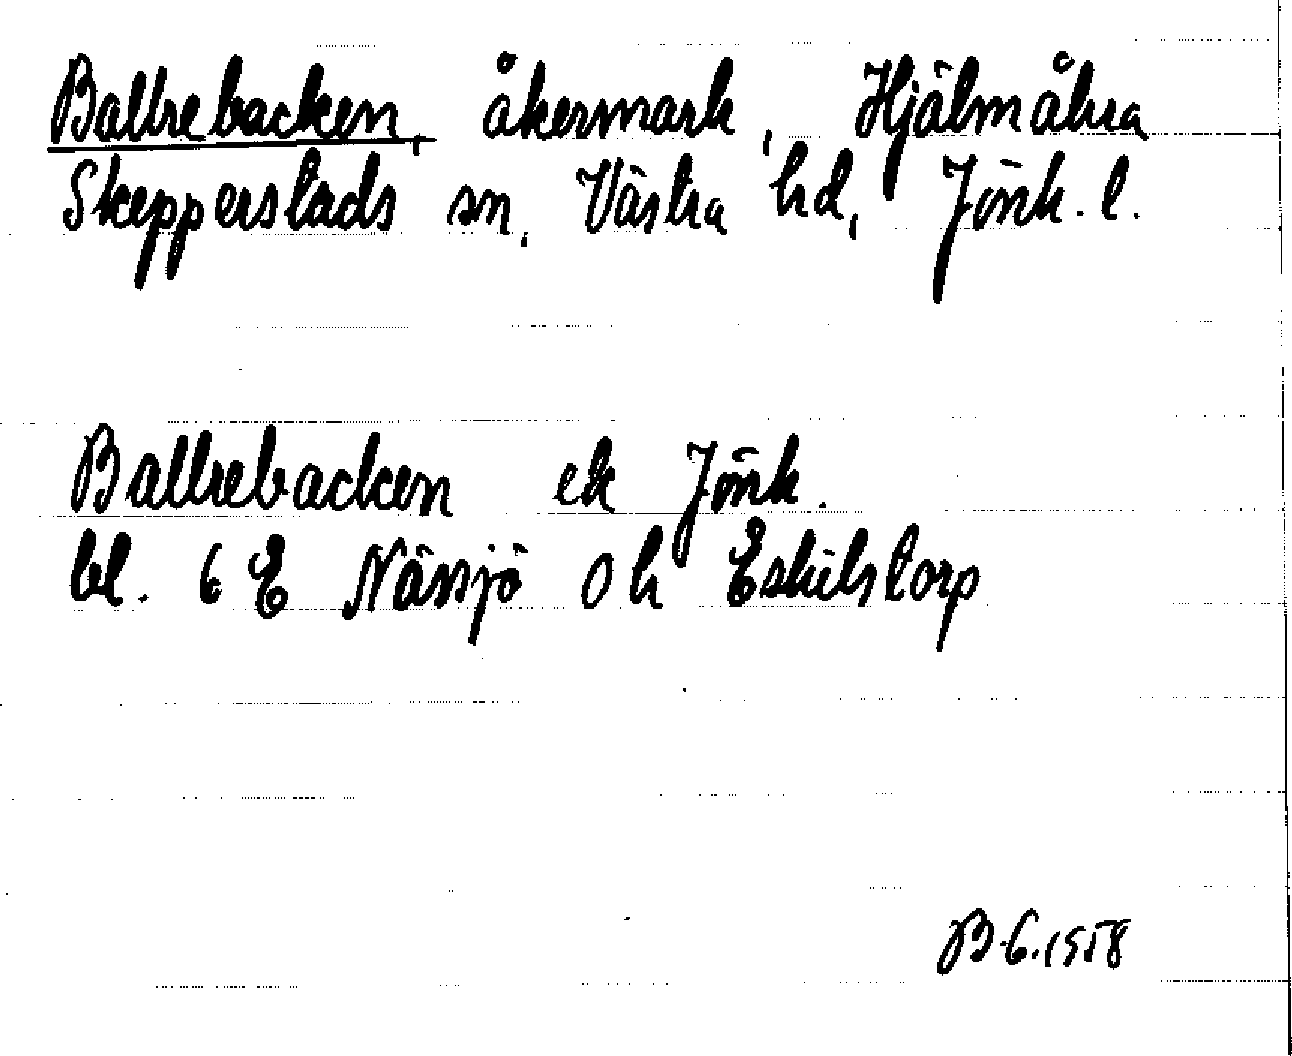 Ballrebacken, åkermark, Hjälmåkra
Skepperstads sn, Västra hd, Jönk. l.
Ballrebacken ek Jönk.
bl. 6 E Nässjö Oh Eskilstorp
B.G. 1958